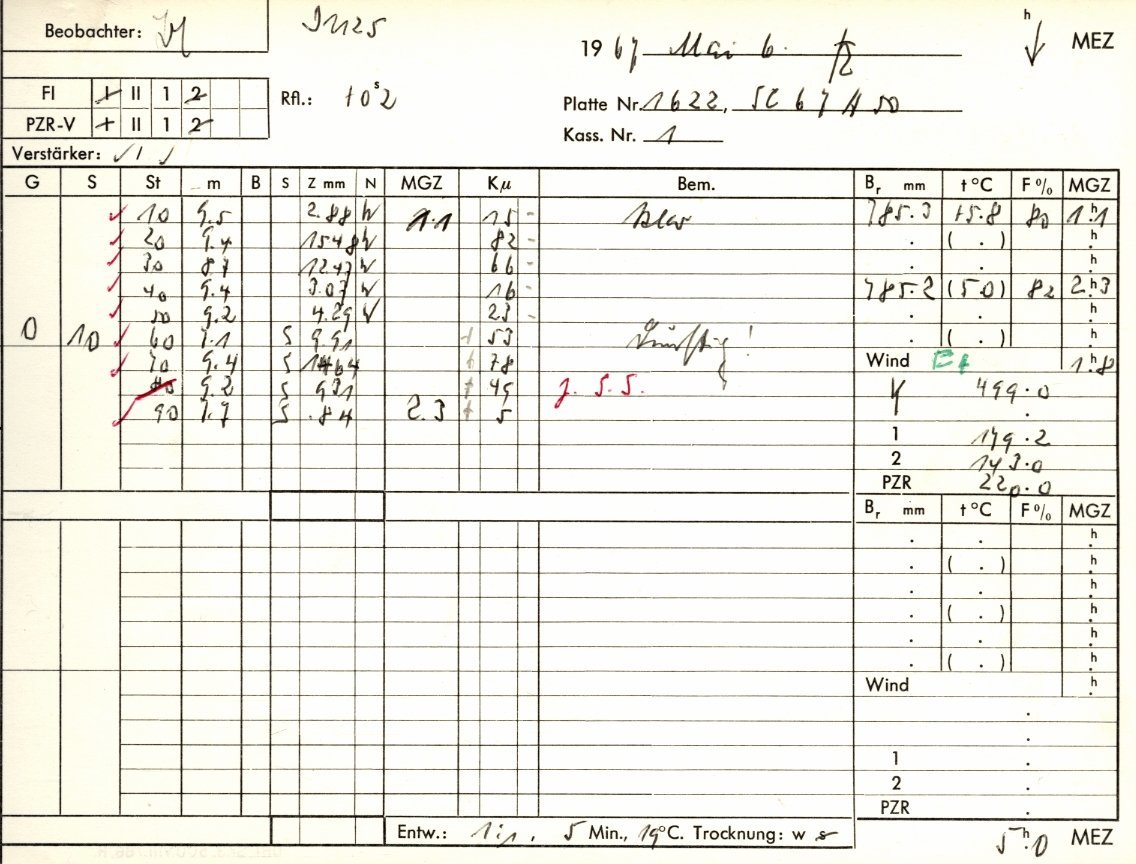 Beobachter:
1967 Mai 6.
h MEZ
FI I II 1 2
Rfl.: +0ˢ2
Platte Nr. 1622,
PZR-V I II 1 2
Kass. Nr. 1
Verstärker:
G S St m B S Z mm N MGZ Kμ Bem.
10 9.5 2.88 N 1.1 15 - klar
20 9.4 15.48 N 82 -
30 8.7 12.47 N 66 -
40 9.4 3.07 N 16 -
50 9.2 4.29 N 23 -
0 10 60 7.1 S 9.91 + 53
70 9.4 S 14.64 + 78
80 9.2 S 9.31 + 49 j. S.S.
90 7.7 S .84 2.3 + 5
Bᵣ mm t°C F% MGZ
785.3 +5.8 80 1ʰ.1
. ( . ) ʰ.
. . ʰ.
785.2 (5.0) 82 2ʰ.3
. . ʰ.
. ( . ) ʰ.
Wind 1ʰ.8
499.0
.
1 179.2
2 143.0
PZR 220.0
Bᵣ mm t°C F% MGZ
. . ʰ.
. ( . ) ʰ.
. . ʰ.
. ( . ) ʰ.
. . ʰ.
. ( . ) ʰ.
Wind ʰ.
.
.
1 .
2 .
PZR .
Entw.: 5 Min., 19°C. Trocknung: w s
5ʰ.0 MEZ